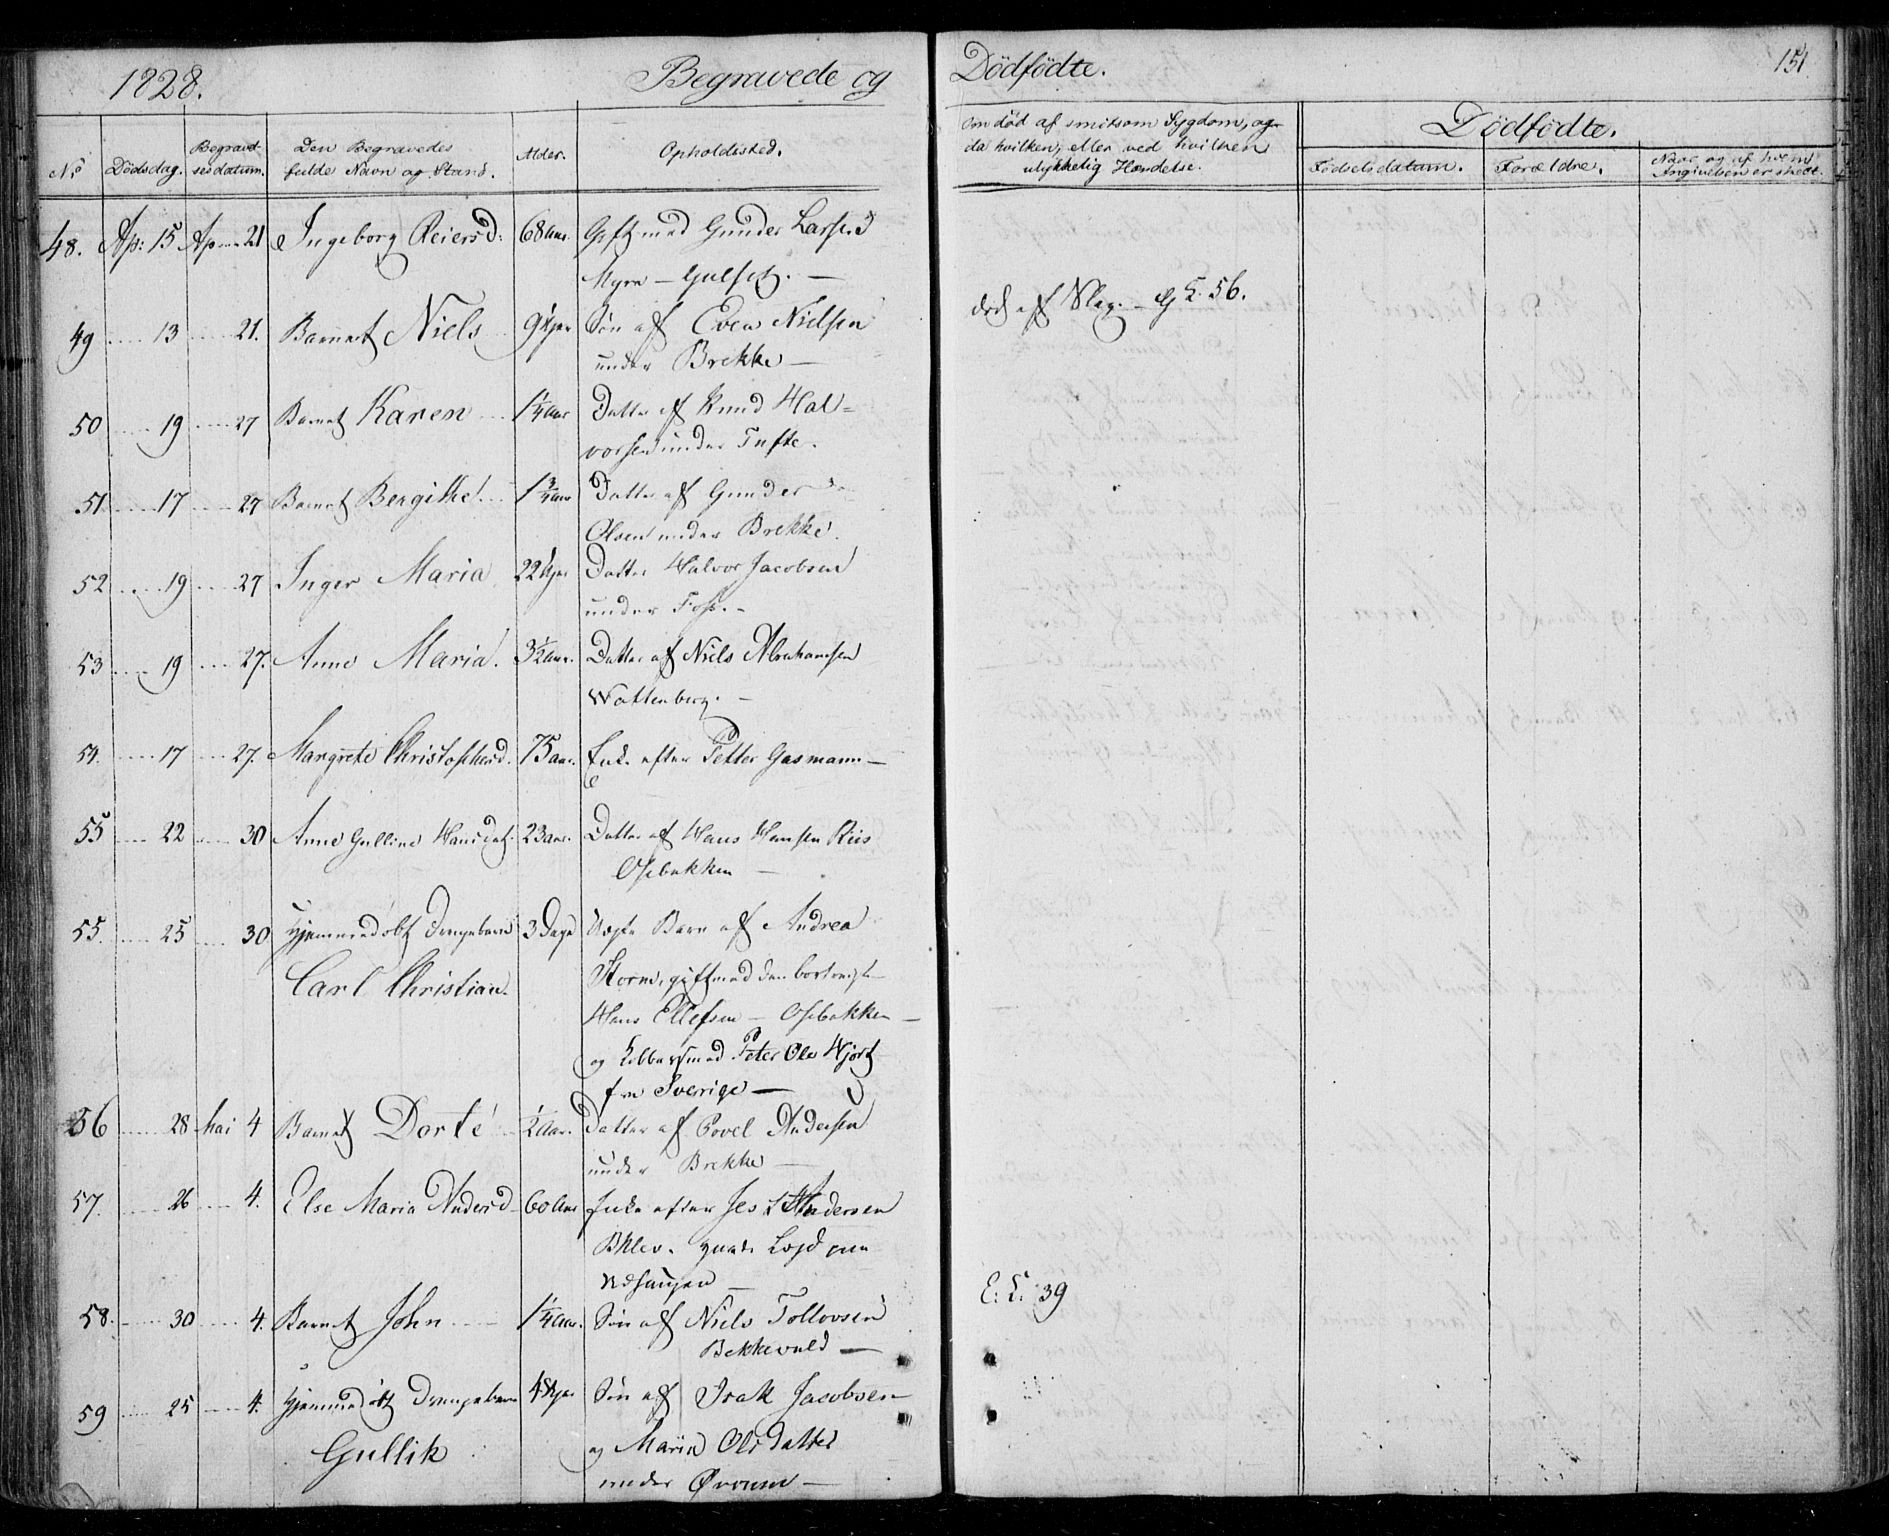 1828. Begravede og Dödfödte. 151
No Dödsdag. Begravelsesdatum. Den Begravedes fulde Navn og Stand. Alder. Opholdsted. Om död af smitsom Sygdom, og da hvilken; eller ved hvilken ulykkelig Hændelse. Dödfödte.
Födselsdatum. Forældre. Naar og af hvem Angivelsen er skeet.
48. Ap: 15 Ap 21 Ingeborg Reiersd: 68 Aar. Gift med Gunder Larsen
Myra — Gulset. —
död af Slag. — 56.
49 13 21. Barnet Niels 9 Søn af Even Nielsen
under Brekke —
50 19 27 Barnet Karen 1¼ Aar Datter af Knud Hal=
vorsen under Tufte.
51 17 27 Barnet Bergithe 1¾ Aar Datter af Gunder
Olsen under Brekke.
52 19 27 Inger Maria 22 Datter Halvor Jacobsen
under Foss. -
53 19 27. Anne Maria. 3½ Aar. Datter af Niels Abrahamsen
Wattenberg. —
54. 17 27. Margrete Christophersd. 75 aar. Enke efter Petter Gasmann —
55 22 30 Anne Gulline Hansdat: 23 aar. Datter af Hans Hansen Riis
Osebakken —
55. 25 30 Hjemmedöbt Drengebarn 3 Dage Uægte Barn af Andrea
Carl Christian. Storm, gift med den bortreiste
Hans Ellefsen — Osebakken —
og Peter Ole Hjort
fra Sverige —
56 28 Mai 4 Barnet Dorte ½ Aar. Datter af Povel Andersen
under Brekke —
57. 26 4. Else Maria Andersd 60 Aar Enke efter Jes Andersen
58. 30 4. Barnet John 1¼ Aar. Søn af Niels Tollovsen
E: L: 39
Bekkevold —
59 25 4. Hjemmedöbt Drengebarn 4 Søn af Isak Jacobsen
Gullik og Maria Olsdatter
under Ørrum —